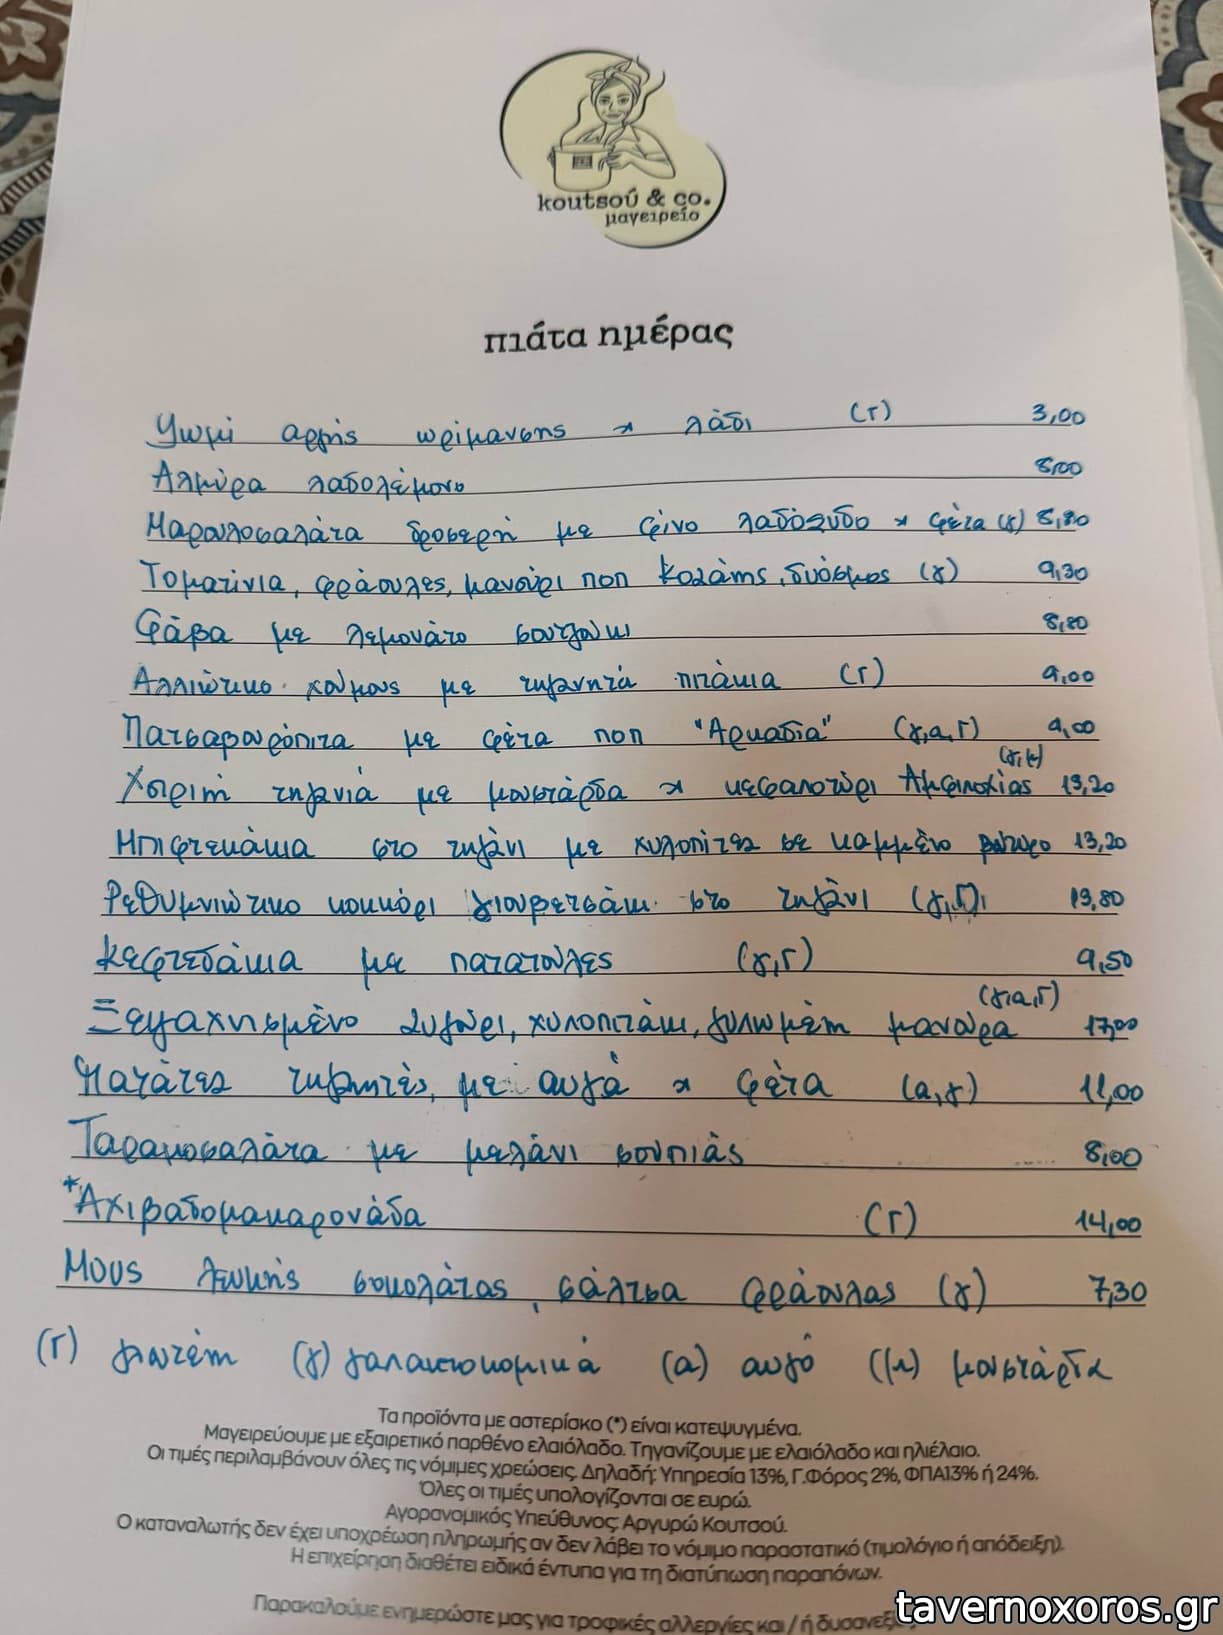 koutsoú & co.
μαγειρείο
πιάτα ημέρας
Ψωμί αργής ωρίμανσης & λάδι (Γ) 3,00
Αλμύρα λαδολέμονο 8,00
Μαρουλοσαλάτα δροσερή με φίνο λαδόξυδο & φέτα (γ) 8,80
Τοματίνια, φράουλες, μανούρι ποπ Κοζάνης, δυόσμος (γ) 9,30
Φάβα με λεμονάτο σουτζούκι 8,80
Αλλιώτικο χούμους με τηγανητά πιτάκια (Γ) 9,00
Πατσαβουρόπιτα με φέτα ποπ "Αρκαδία" (γ,α,Γ) 9,00
Χοιρινή τηγανιά με μουστάρδα & κεφαλοτύρι Αμφιλοχίας (γ,μ) 13,20
Μπιφτεκάκια στο τηγάνι με χυλοπίτες σε καμμένο βούτυρο 13,20
Ρεθυμνιώτικο κοκκόρι γιουβετσάκι στο τηγάνι (γ,Γ) 13,80
Κεφτεδάκια με πατατούλες (γ,Γ) 9,50
Ξεψαχνισμένο ζυγούρι, χυλοπιτάκι, γυλωμένη μανούρα (γ,α,Γ) 17,00
Πατάτες τηγανητές, με αυγά & φέτα (α,γ) 11,00
Ταραμοσαλάτα με μελάνι σουπιάς 8,00
*Αχιβαδομακαρονάδα (Γ) 14,00
Μους λευκής σοκολάτας, σάλτσα φράουλας (γ) 7,30
(Γ) γλουτένη (γ) γαλακτοκομικά (α) αυγό (μ) μουστάρδα
Τα προϊόντα με αστερίσκο (*) είναι κατεψυγμένα.
Μαγειρεύουμε με εξαιρετικό παρθένο ελαιόλαδο. Τηγανίζουμε με ελαιόλαδο και ηλιέλαιο.
Οι τιμές περιλαμβάνουν όλες τις νόμιμες χρεώσεις. Δηλαδή: Υπηρεσία 13%, Γ.Φόρος 2%, ΦΠΑ13% ή 24%.
Όλες οι τιμές υπολογίζονται σε ευρώ.
Αγορανομικός Υπεύθυνος: Αργυρώ Κουτσού.
Ο καταναλωτής δεν έχει υποχρέωση πληρωμής αν δεν λάβει το νόμιμο παραστατικό (τιμολόγιο ή απόδειξη).
Η επιχείρηση διαθέτει ειδικά έντυπα για τη διατύπωση παραπόνων.
Παρακαλούμε ενημερώστε μας για τροφικές αλλεργίες και / ή
tavernoxoros.gr